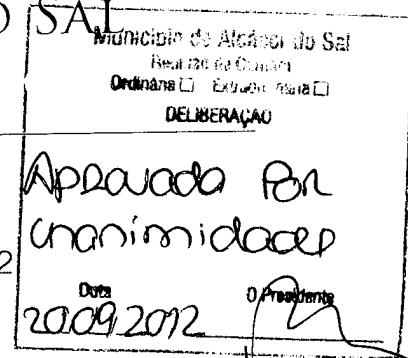 O SAL
Município de Alcácer do Sal
Reunião da Câmara
Ordinária ☐ Extraordinária ☐
DELIBERAÇÃO
Aprovada por
unanimidade
2
Data O Presidente
20.09.2012